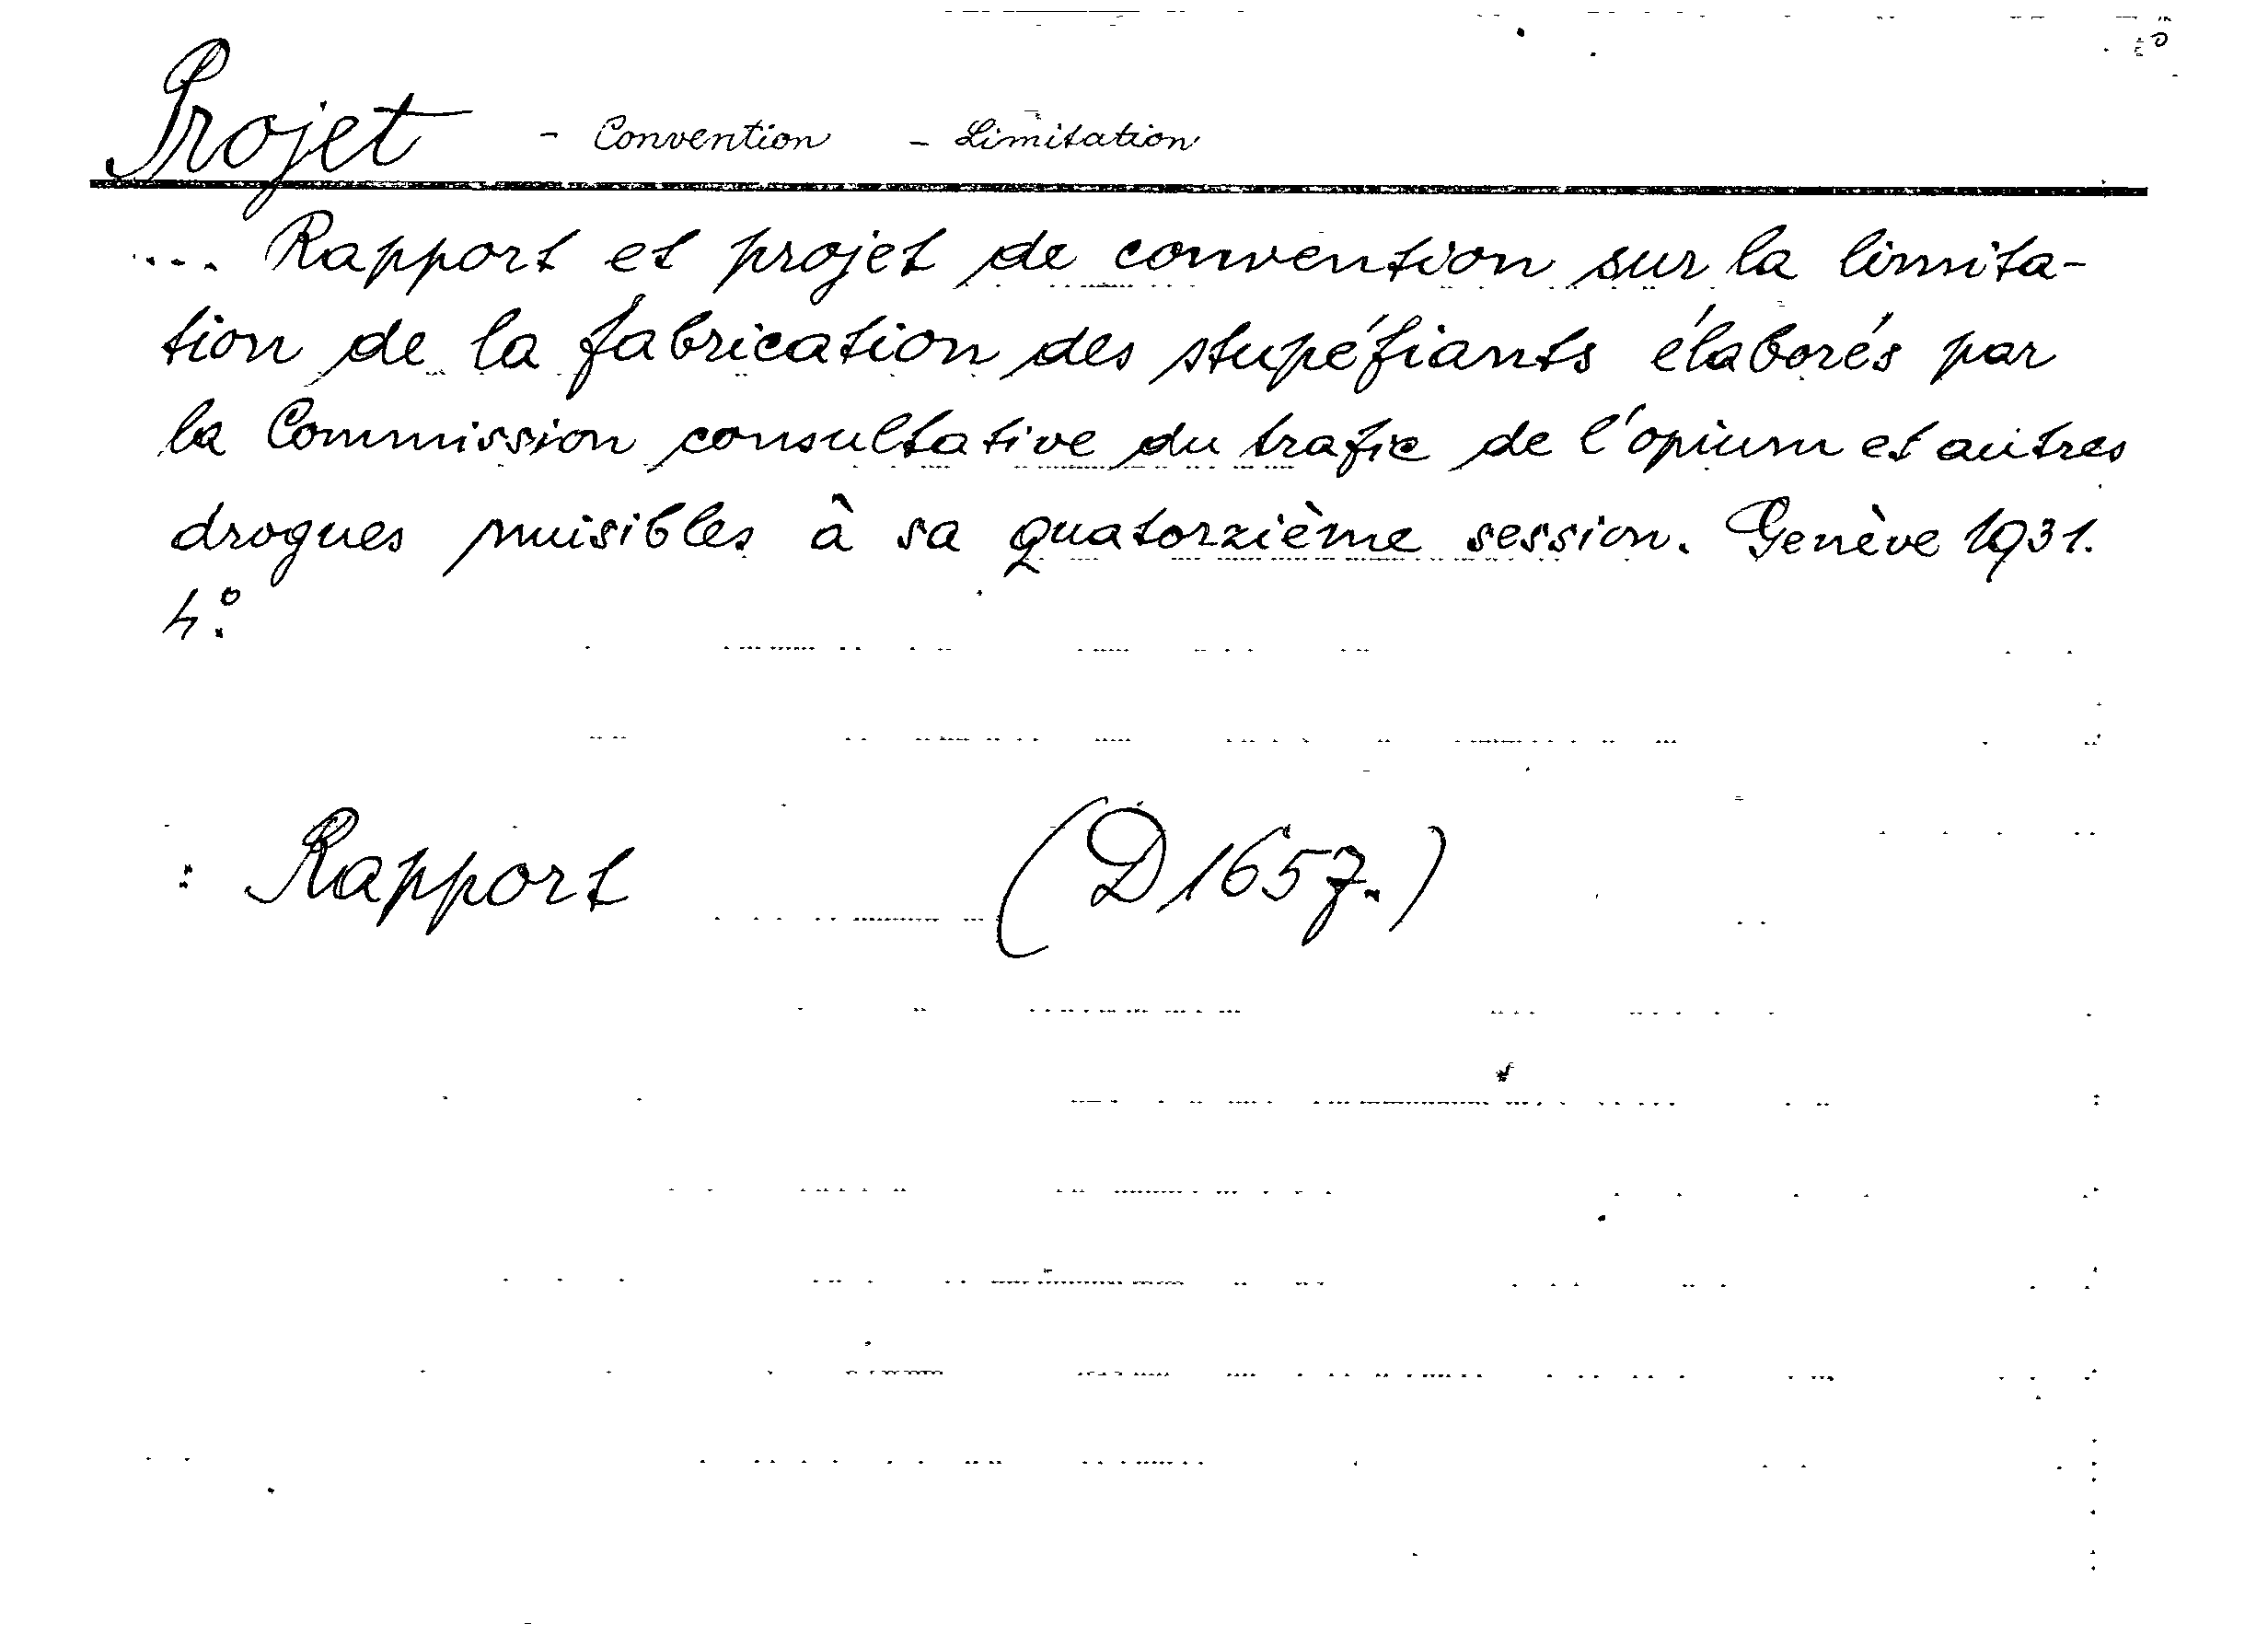 Projet - Convention - Limitation
.... Rapport et projet de convention sur la limita-
tion de la fabrication des stupéfiants élaborés par
la Commission consultative du trafic de l'opium et autres
drogues nuisibles à sa quatorzième session. Genève 1931.
4°.
: Rapport (D 1657.)